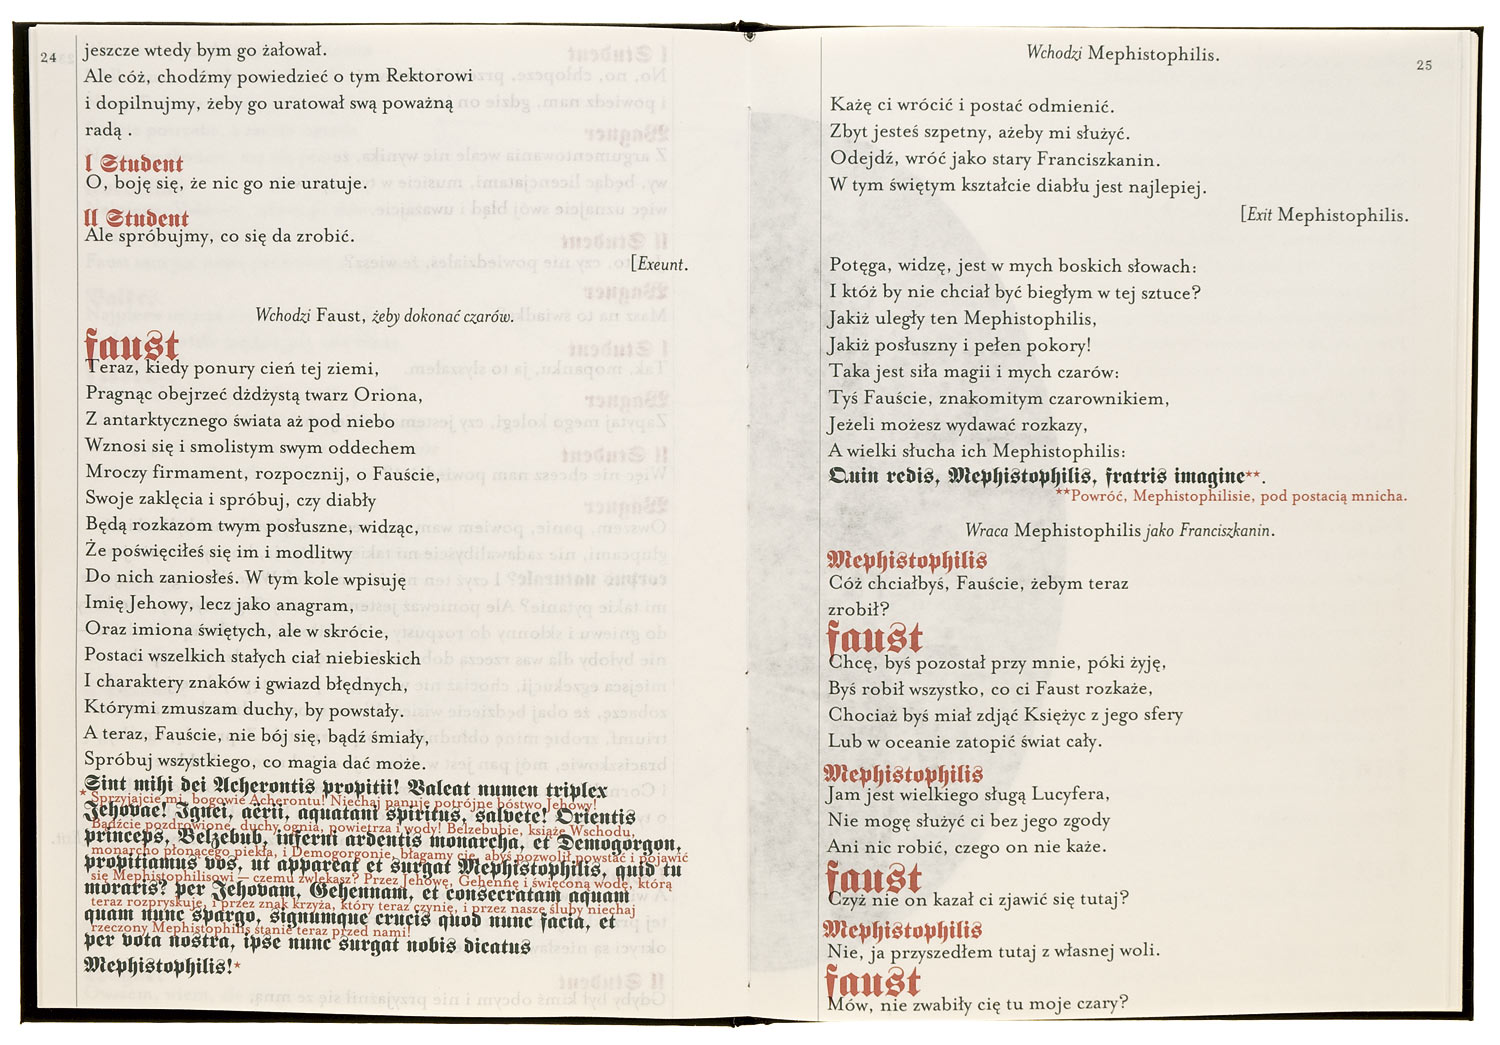 24
jeszcze wtedy bym go żałował.
Ale cóż, chodźmy powiedzieć o tym Rektorowi
i dopilnujmy, żeby go uratował swą poważną
radą .
I Student
O, boję się, że nic go nie uratuje.
II Student
Ale spróbujmy, co się da zrobić.
[Exeunt.
Wchodzi Faust, żeby dokonać czarów.
faust
Teraz, kiedy ponury cień tej ziemi,
Pragnąc obejrzeć dżdżystą twarz Oriona,
Z antarktycznego świata aż pod niebo
Wznosi się i smolistym swym oddechem
Mroczy firmament, rozpocznij, o Fauście,
Swoje zaklęcia i spróbuj, czy diabły
Będą rozkazom twym posłuszne, widząc,
Że poświęciłeś się im i modlitwy
Do nich zaniosłeś. W tym kole wpisuję
Imię Jehowy, lecz jako anagram,
Oraz imiona świętych, ale w skrócie,
Postaci wszelkich stałych ciał niebieskich
I charaktery znaków i gwiazd błędnych,
Którymi zmuszam duchy, by powstały.
A teraz, Fauście, nie bój się, bądź śmiały,
Spróbuj wszystkiego, co magia dać może.
Sint mihi dei Acherontis propitii! Valeat numen triplex
* Sprzyjajcie mi, bogowie Acherontu! Niechaj panuje potrójne bóstwo Jehowy!
Jehovae! Ignei, aërii, aquatani spiritus, salvete! Orientis
Bądźcie pozdrowione, duchy ognia, powietrza i wody! Belzebubie, książę Wschodu,
princeps, Belzebub, inferni ardentis monarcha, et Demogorgon,
monarcho płonącego piekła, i Demogorgonie, błagamy cię, abyś pozwolił powstać i pojawić
propitiamus vos, ut appareat et surgat Mephistophilis, quid tu
się Mephistophilisowi — czemu zwlekasz? Przez Jehowę, Gehennę i święconą wodę, którą
moraris? per Jehovam, Gehennam, et consecratam aquam
teraz rozpryskuję, i przez znak krzyża, który teraz czynię, i przez nasze śluby niechaj
quam nunc spargo, signumque crucis quod nunc facia, et
rzeczony Mephistophilis stanie teraz przed nami!
per vota nostra, ipse nunc surgat nobis dicatus
Mephistophilis!*
25
Wchodzi Mephistophilis.
Każę ci wrócić i postać odmienić.
Zbyt jesteś szpetny, ażeby mi służyć.
Odejdź, wróć jako stary Franciszkanin.
W tym świętym kształcie diabłu jest najlepiej.
[Exit Mephistophilis.
Potęga, widzę, jest w mych boskich słowach:
I któż by nie chciał być biegłym w tej sztuce?
Jakiż uległy ten Mephistophilis,
Jakiż posłuszny i pełen pokory!
Taka jest siła magii i mych czarów:
Tyś Fauście, znakomitym czarownikiem,
Jeżeli możesz wydawać rozkazy,
A wielki słucha ich Mephistophilis:
Quin redis, Mephistophilis, fratris imagine**.
**Powróć, Mephistophilisie, pod postacią mnicha.
Wraca Mephistophilis jako Franciszkanin.
Mephistophilis
Cóż chciałbyś, Fauście, żebym teraz
zrobił?
faust
Chcę, byś pozostał przy mnie, póki żyję,
Byś robił wszystko, co ci Faust rozkaże,
Chociaż byś miał zdjąć Księżyc z jego sfery
Lub w oceanie zatopić świat cały.
Mephistophilis
Jam jest wielkiego sługą Lucyfera,
Nie mogę służyć ci bez jego zgody
Ani nic robić, czego on nie każe.
faust
Czyż nie on kazał ci zjawić się tutaj?
Mephistophilis
Nie, ja przyszedłem tutaj z własnej woli.
faust
Mów, nie zwabiły cię tu moje czary?